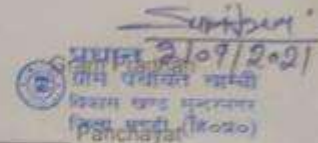 प्रधान 2/09/2021
ग्राम पंचायत चाम्बी
विकास खण्ड सुन्दरनगर
जिला मण्डी (हि०प्र०)
Panchayat